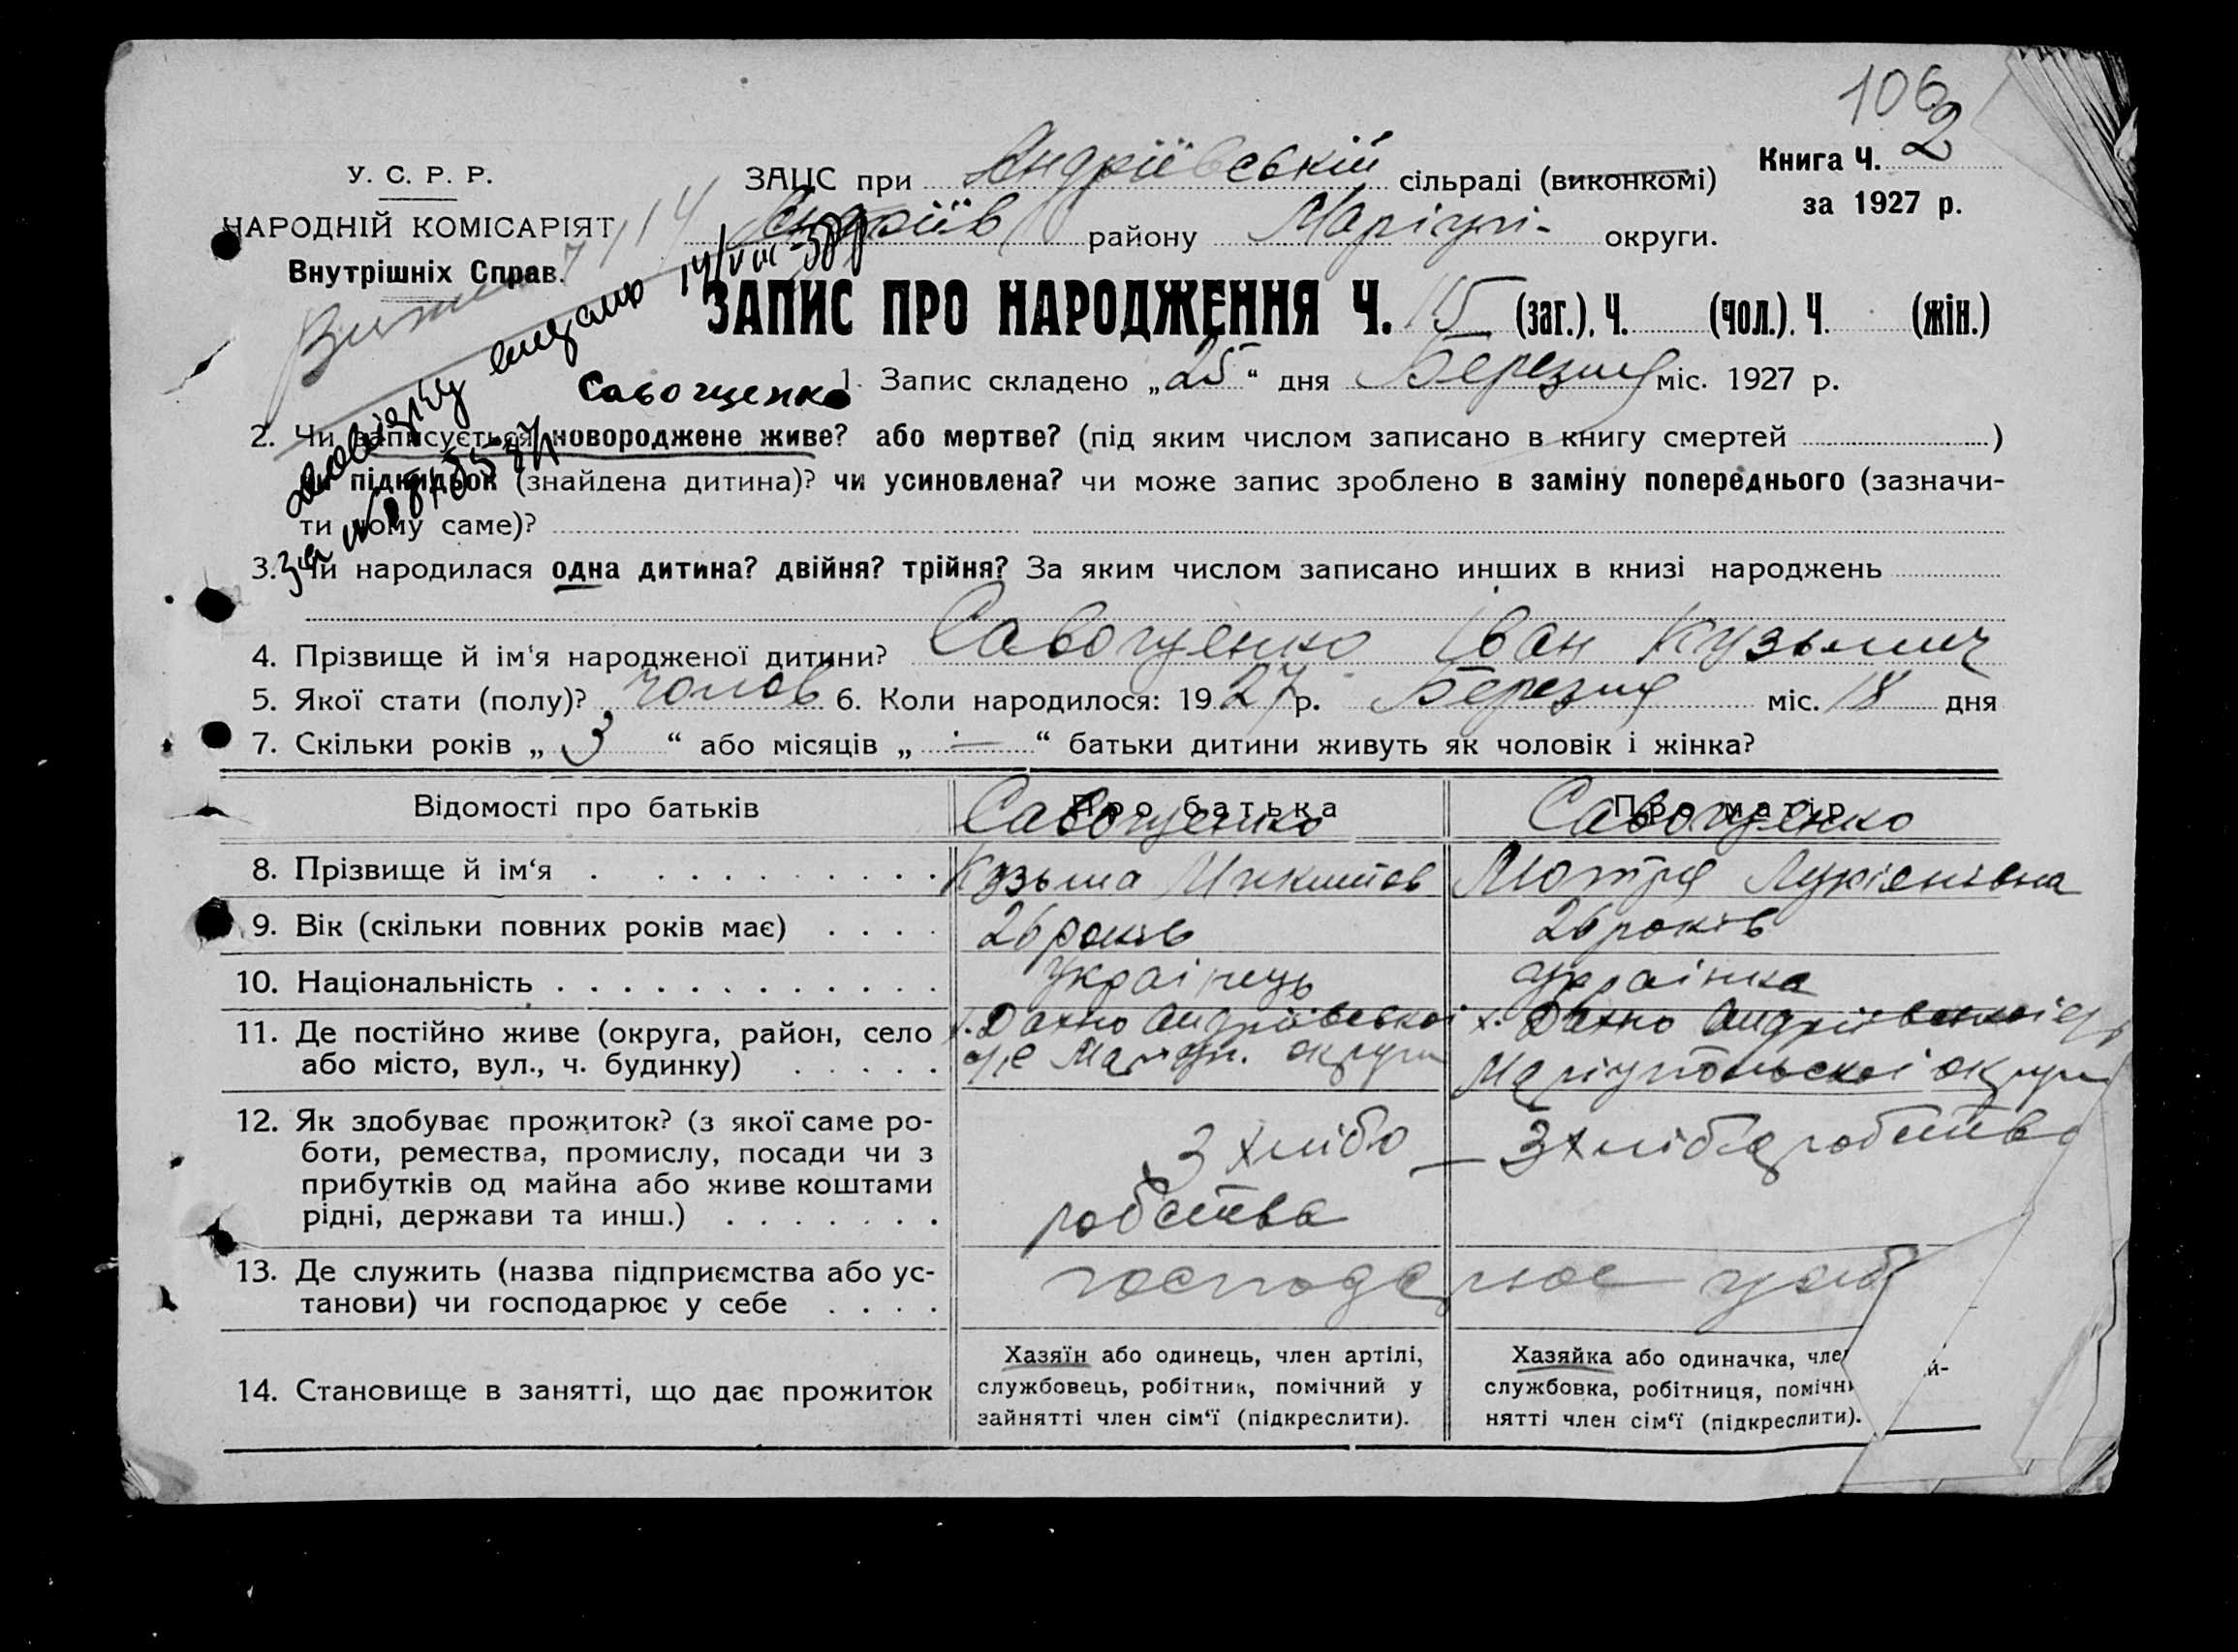 106
У. С. Р. Р.
НАРОДНІЙ КОМІСАРІЯТ
Внутрішніх Справ.
ЗАГС при Андріївській сільраді (виконкомі)
Андріїв району Маріупі- округи.
Книга Ч. 2
за 1927 р.
ЗАПИС ПРО НАРОДЖЕННЯ Ч. 15 (заг.), Ч. (чол.). Ч. (жін.)
14/VIII
Савощенко
1. Запис складено „25“ дня Березня міс. 1927 р.
2. Чи записується новороджене живе? або мертве? (під яким числом записано в книгу смертей )
чи підкидьок (знайдена дитина)? чи усиновлена? чи може запис зроблено в заміну попереднього (зазначи-
ти чому саме)?
за №
3. Чи народилася одна дитина? двійня? трійня? За яким числом записано инших в книзі народжень
4. Прізвище й ім'я народженої дитини? Савощенко Іван Кузьмич
5. Якої стати (полу)? чолов 6. Коли народилося: 1927 р. Березня міс. 18 дня
7. Скільки років „ 3 “ або місяців „ — “ батьки дитини живуть як чоловік і жінка?
Відомості про батьків Про батька Про матір
Савощенко Савощенко
8. Прізвище й ім‘я Кузьма Микитов Мотря Лукіянівна
9. Вік (скільки повних років має) 26 років 26 років
10. Національність українець українка
11. Де постійно живе (округа, район, село х. Дахно Андріївської х. Дахно Андріївської с/р
або місто, вул., ч. будинку) округи Маріупольської округи
12. Як здобуває прожиток? (з якої саме ро-
боти, ремества, промислу, посади чи з З хлібо — З хліборобства
прибутків од майна або живе коштами
рідні, держави та инш.) робства
13. Де служить (назва підприємства або ус- господарює у себе
танови) чи господарює у себе
14. Становище в занятті, що дає прожиток
Хазяїн або одинець, член артілі,
службовець, робітник, помічний у
зайнятті член сім‘ї (підкреслити).
Хазяйка або одиначка, чле
службовка, робітниця, помічн й-
нятті член сім‘ї (підкреслити).